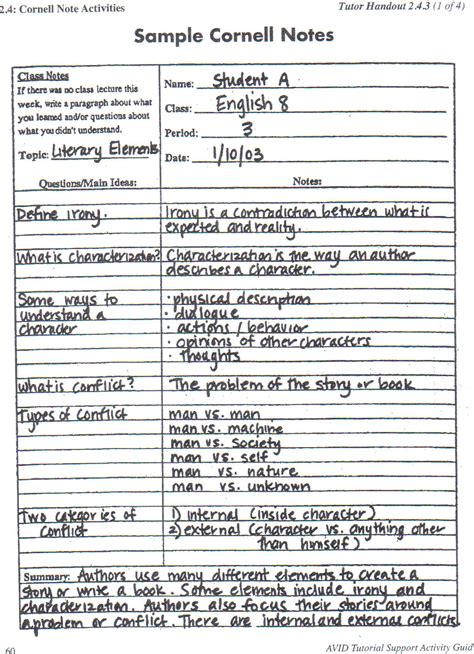 2.4: Cornell Note Activities Tutor Handout 2.4.3 (1 of 4)
Sample Cornell Notes
Class Notes
If there was no class lecture this
week, write a paragraph about what
you learned and/or questions about
what you didn't understand.
Topic: Literary Elements
Name: Student A
Class: English 8
Period: 3
Date: 1/10/03
Questions/Main Ideas: Notes:
Define irony. Irony is a contradiction between what is
expected and reality.
What is characterization? Characterization is the way an author
describes a character.
Some ways to · physical description
understand a · dialogue
character · actions / behavior
· opinions of other characters
· thoughts
What is conflict? The problem of the story or book
Types of Conflict man vs. man
man vs. machine
man vs. society
man vs. self
man vs. nature
man vs. unknown
Two categories of 1) internal (inside character)
conflict 2) external (character vs. anything other
than himself)
Summary: Authors use many different elements to create a
story or write a book. Some elements include irony and
characterization. Authors also focus their stories around
a problem or conflict. There are internal and external conflicts
60 AVID Tutorial Support Activity Guide